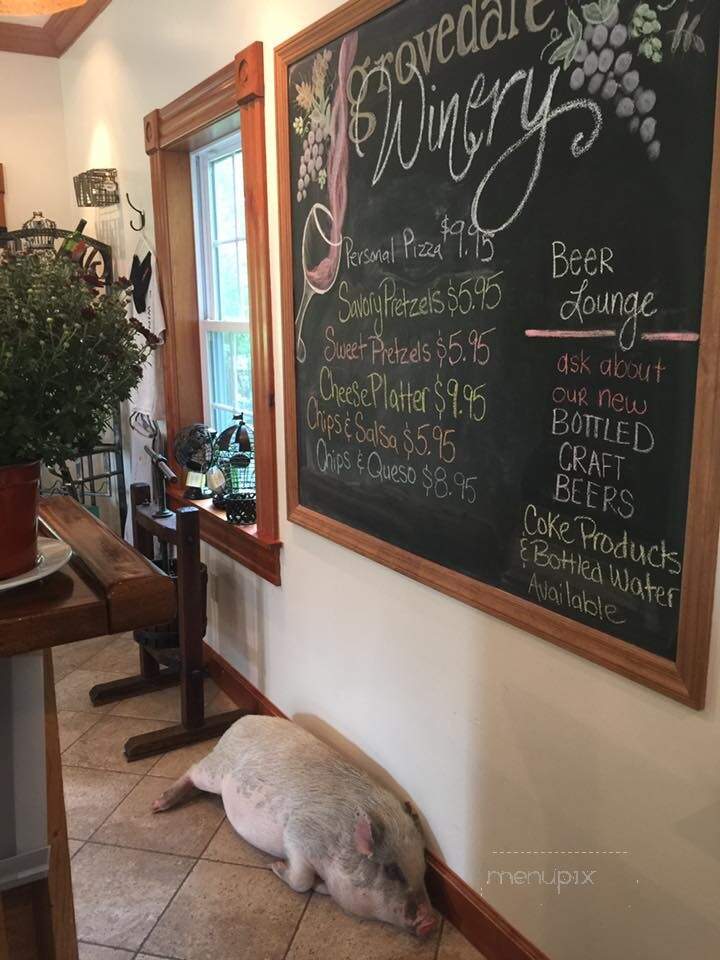 grovedale
Winery
Personal Pizza $9.95
Savory Pretzels $5.95
Sweet Pretzels $5.95
Cheese Platter $9.95
Chips & Salsa $5.95
Chips & Queso $8.95
BEER
Lounge
ask about
our new
BOTTLED
CRAFT
BEERS
Coke Products
& Bottled Water
Available
menupix